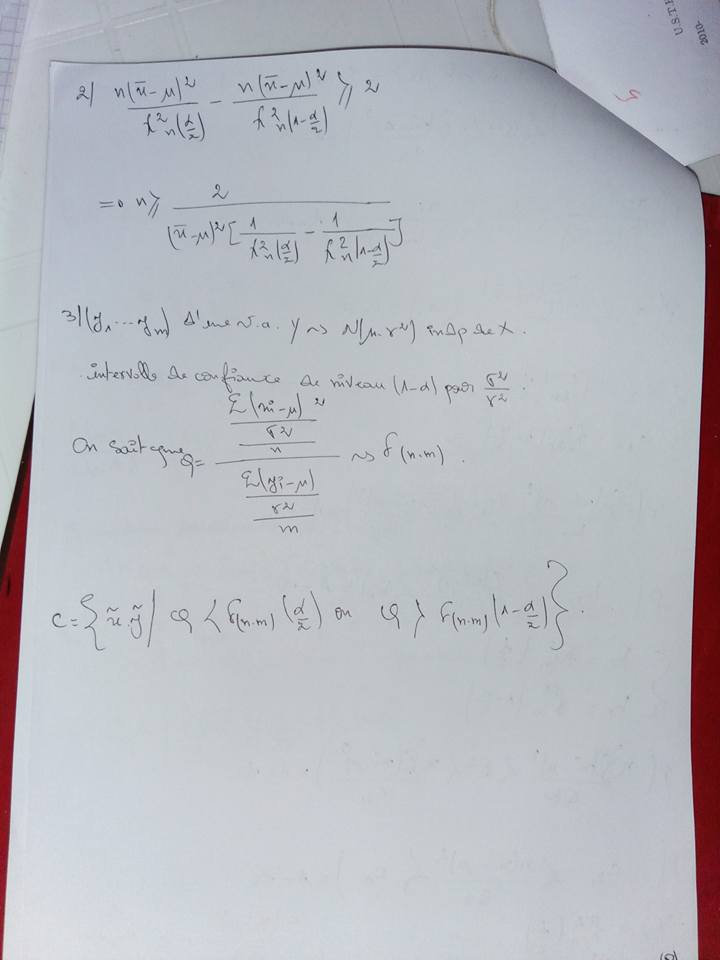 2010-
U.S.T.
5
2) n(x̄-μ)²/χ²n(α/2) - n(x̄-μ)²/χ²n(1-α/2) ≥ 2
=> n ≥ 2/((x̄-μ)²[1/χ²n(α/2) - 1/χ²n(1-α/2)])
3) (y₁...yₘ) d'une v.a. Y ~> N(μ.γ²) indp de X.
intervalle de confiance de niveau (1-α) pour σ²/γ².
On sait que Q = (Σ(xi-μ)²/σ²/n)/(Σ(yi-μ)/γ²/m) ~> F(n.m).
C = {x̃.ỹ / Q < F(n.m)(α/2) ou Q > F(n.m)(1-α/2)}.